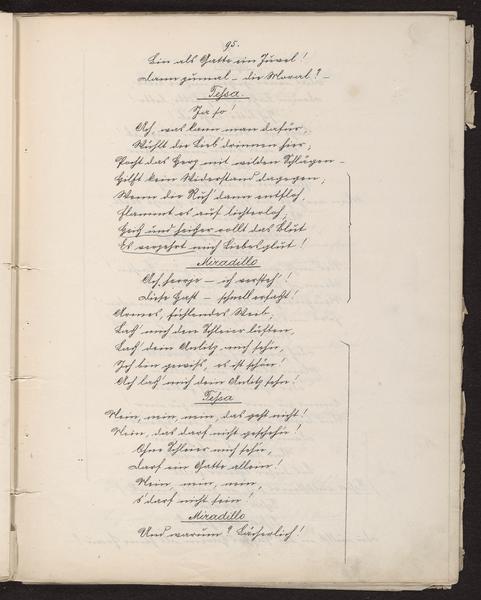 95.
Bin als Gatte ein Juwel!
Dann zumal – die Moral? –
Tessa.
Ja so!
Ach, was kann man dafür,
Wühlt die Lieb' drinnen hier,
Pocht das Herz mit wilden Schlägen –
Hilft kein Widerstand dagegen;
Wenn die Ruh' dann entfloh,
Flammt es auf lichterloh,
Heiß und heißer rollt das Blut
Es verzehrt mich Liebesglut!
Miradillo
Ach, herrje – ich versteh'!
Diese Hast – schnell erfaßt!
Armes, fühlendes Weib,
Laß' mich den Schleier lüften,
Laß' dein Antlitz mich sehn,
Ich bin gewiß, es ist schön!
Ach laß' mich dein Antlitz sehn!
Tessa
Nein, nein, nein, das geht nicht!
Nein, das darf nicht geschehn!
Ohne Schleier mich sehn,
Darf ein Gatte allein!
Nein, nein, nein,
s' darf nicht sein!
Miradillo
Und warum? Lächerlich!